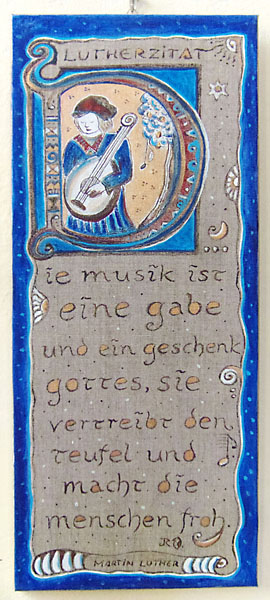 LUTHERZITAT
Die musik ist
eine gabe
und ein geschenk
gottes, sie
vertreibt den
teufel und
macht die
menschen froh.
MARTIN LUTHER